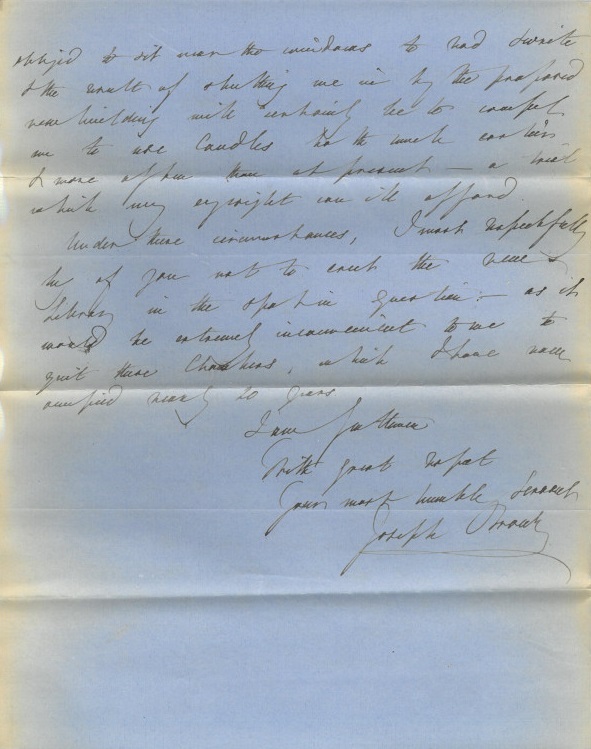 obliged to sit near the windows to read & write
& the result of shutting me in by the proposed
new building will certainly be to compel
me to use Candles both much earlier
& more often than at present – a trial
which my eyesight can ill afford.
Under these circumstances, I most respectfully
beg of you not to erect the new
Library in the spot in question :– as it
would be extremely inconvenient to me to
quit these Chambers, which I have now
occupied nearly 20 years
I am Gentlemen
With great respect
Your most humble Servant
Joseph